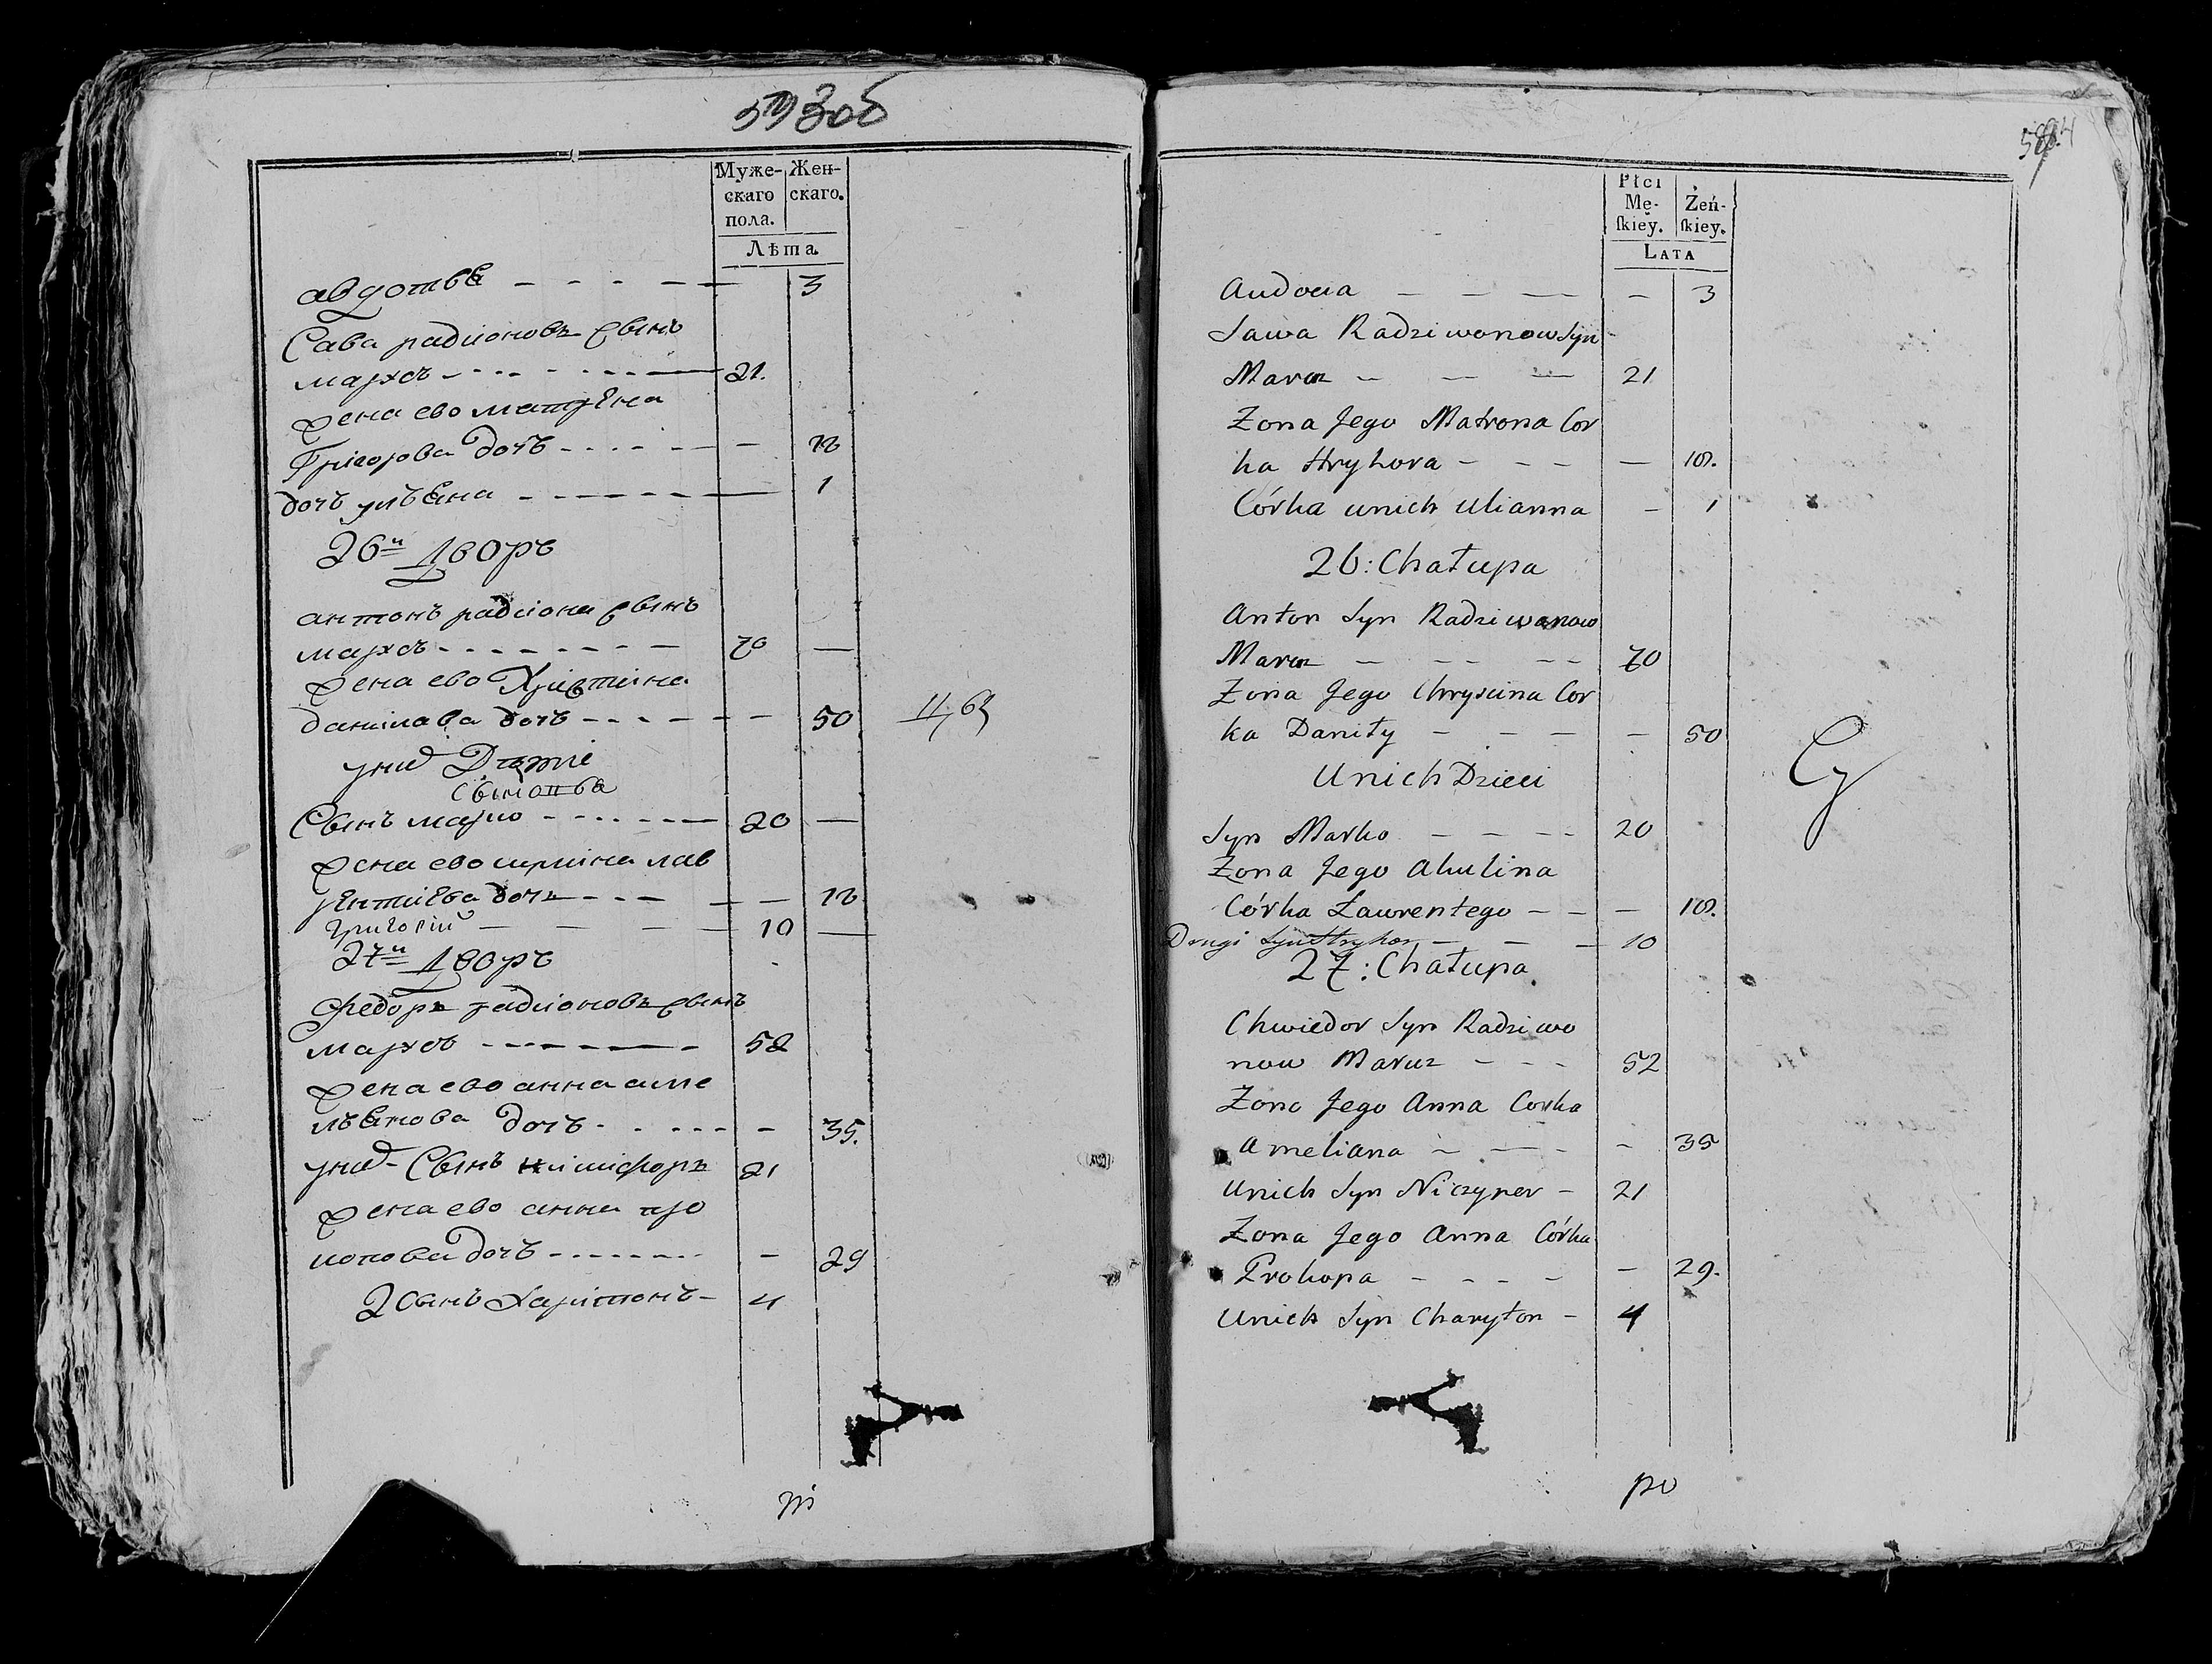 573об
Муже-
скаго
пола.
Жен-
скаго.
Лѣта
авдотья - - - - - 3
Сава радионовъ сынъ
марко - - - - - 21.
жена ево матрена
Григорова дочь - - - - - 18
дочь ульяна - - - - - 1
26й дворъ
антонъ радиона сынъ
- - - - - 70 —
жена ево Христина
данилава дочь - - - - - 50
унид Дети
Сынъ марко - - - - - 20 —
жена ево
рентиева дочь - - - - 18
григорий — — — — 10 —
27й дворъ
Федоръ радионовъ сынъ
- - - - - 52
жена ево анна аме
льянова дочь - - - - - 35.
унид Сынъ никифоръ 21
жена ево анна про
копова дочь - - - - - 29
2 Сынъ Харитонъ - 4
Płci
Mę-
ſkiey.
Żeń-
ſkiey.
LATA
Audocia — — — — 3
Sawa Radziwonow Syn
— — — 21
Zona Jego Matrona Cor
ka Hryhora - - - — 18.
Córka unich Ulianna - 1
26: Chałupa
Anton Syn Radziwonow
— — — 70
Zona Jego Chryscina Cor
ka Daniły — — — — 50
Unich Dzieci
Syn Marko — — — 20
Zona Jego Akulina
Córka Ławrentego — — — 18.
Drugi Syn Hryhor — — — 10
27: Chałupa
Chwiedor Syn Radziwo
now - - - 52
Zona Jego Anna Corka
Ameliana — — — 35
Unich Syn Niczyper - 21
Zona Jego Anna Córka
Prokopa - - - - — 29.
Unich Syn Charyton - 4